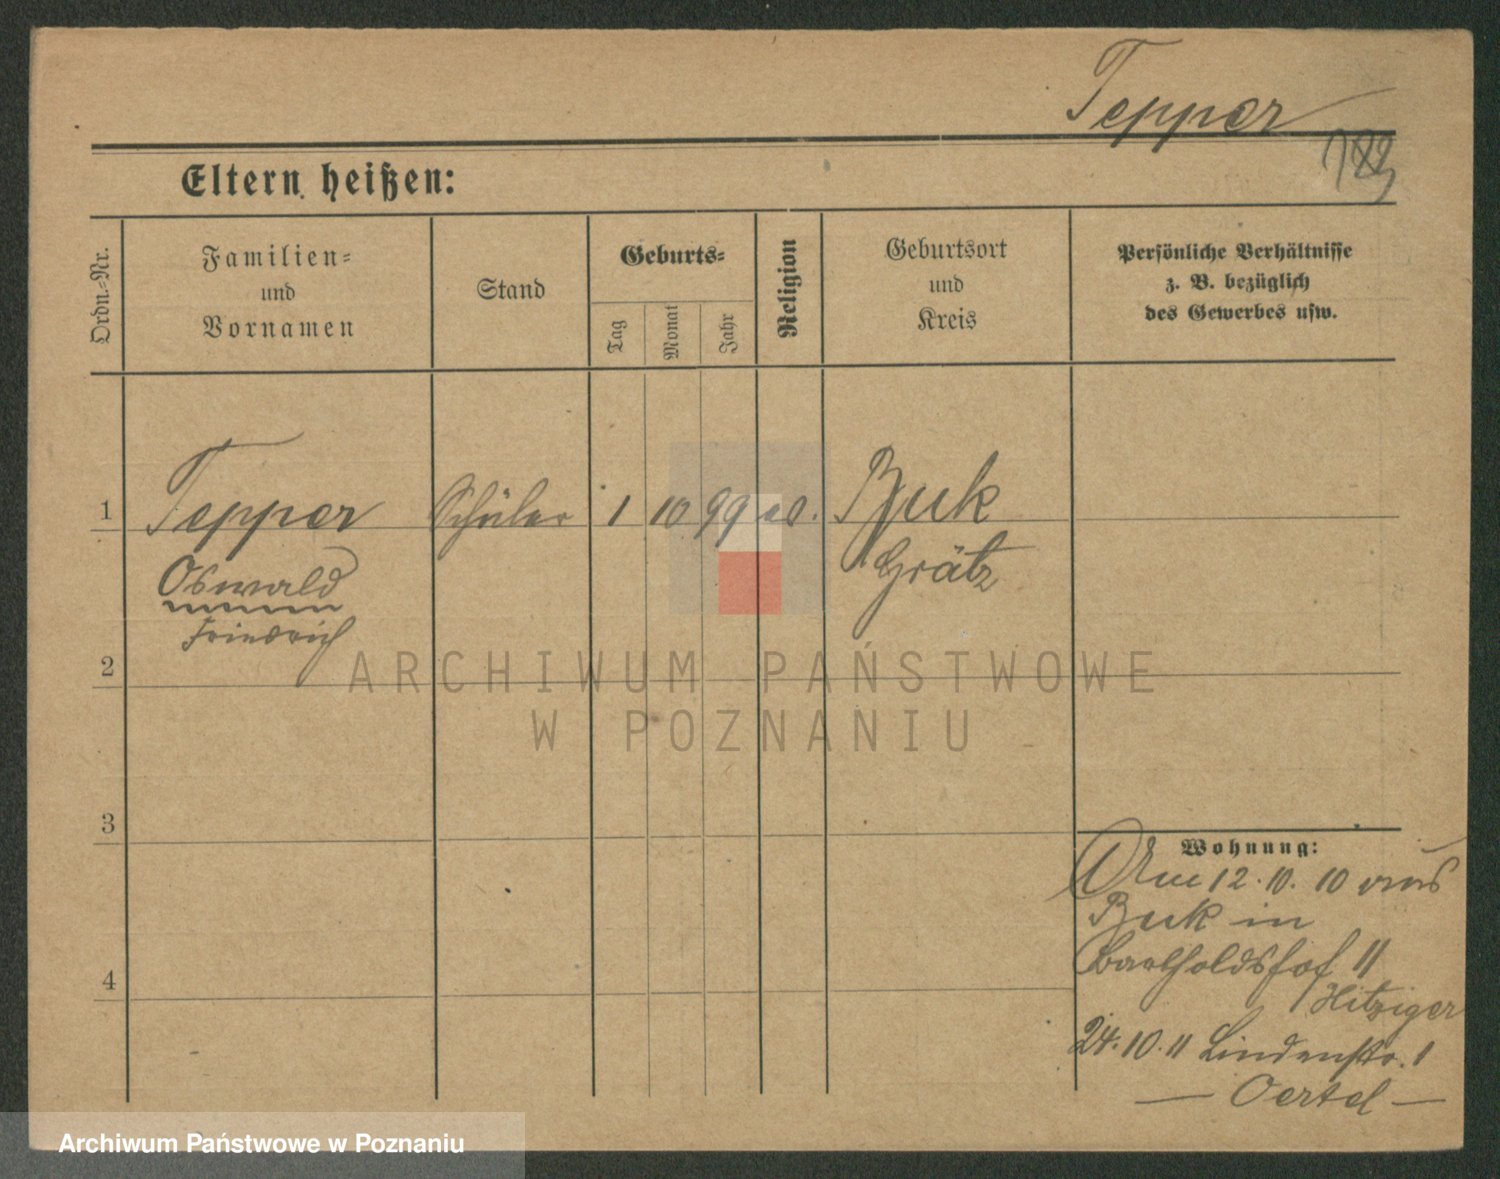 Tepper
Eltern heißen:
Ordn.-Nr.
Familien-
und
Vornamen
Stand
Geburts-
Tag
Monat
Jahr
Religion
Geburtsort
und
Kreis
Persönliche Verhältnisse
z. B. bezüglich
des Gewerbes usw.
1
Tepper
Schüler
1
10
99
Buk
Oswald
Grätz
Friedrich
2
ARCHIWUM PAŃSTWOWE
W POZNANIU
3
Wohnung:
12.10.10 aus
Buk in
4
Bartholdshof 11
Hitziger
24.10.11 Lindenstr. 1
— Oertel —
Archiwum Państwowe w Poznaniu